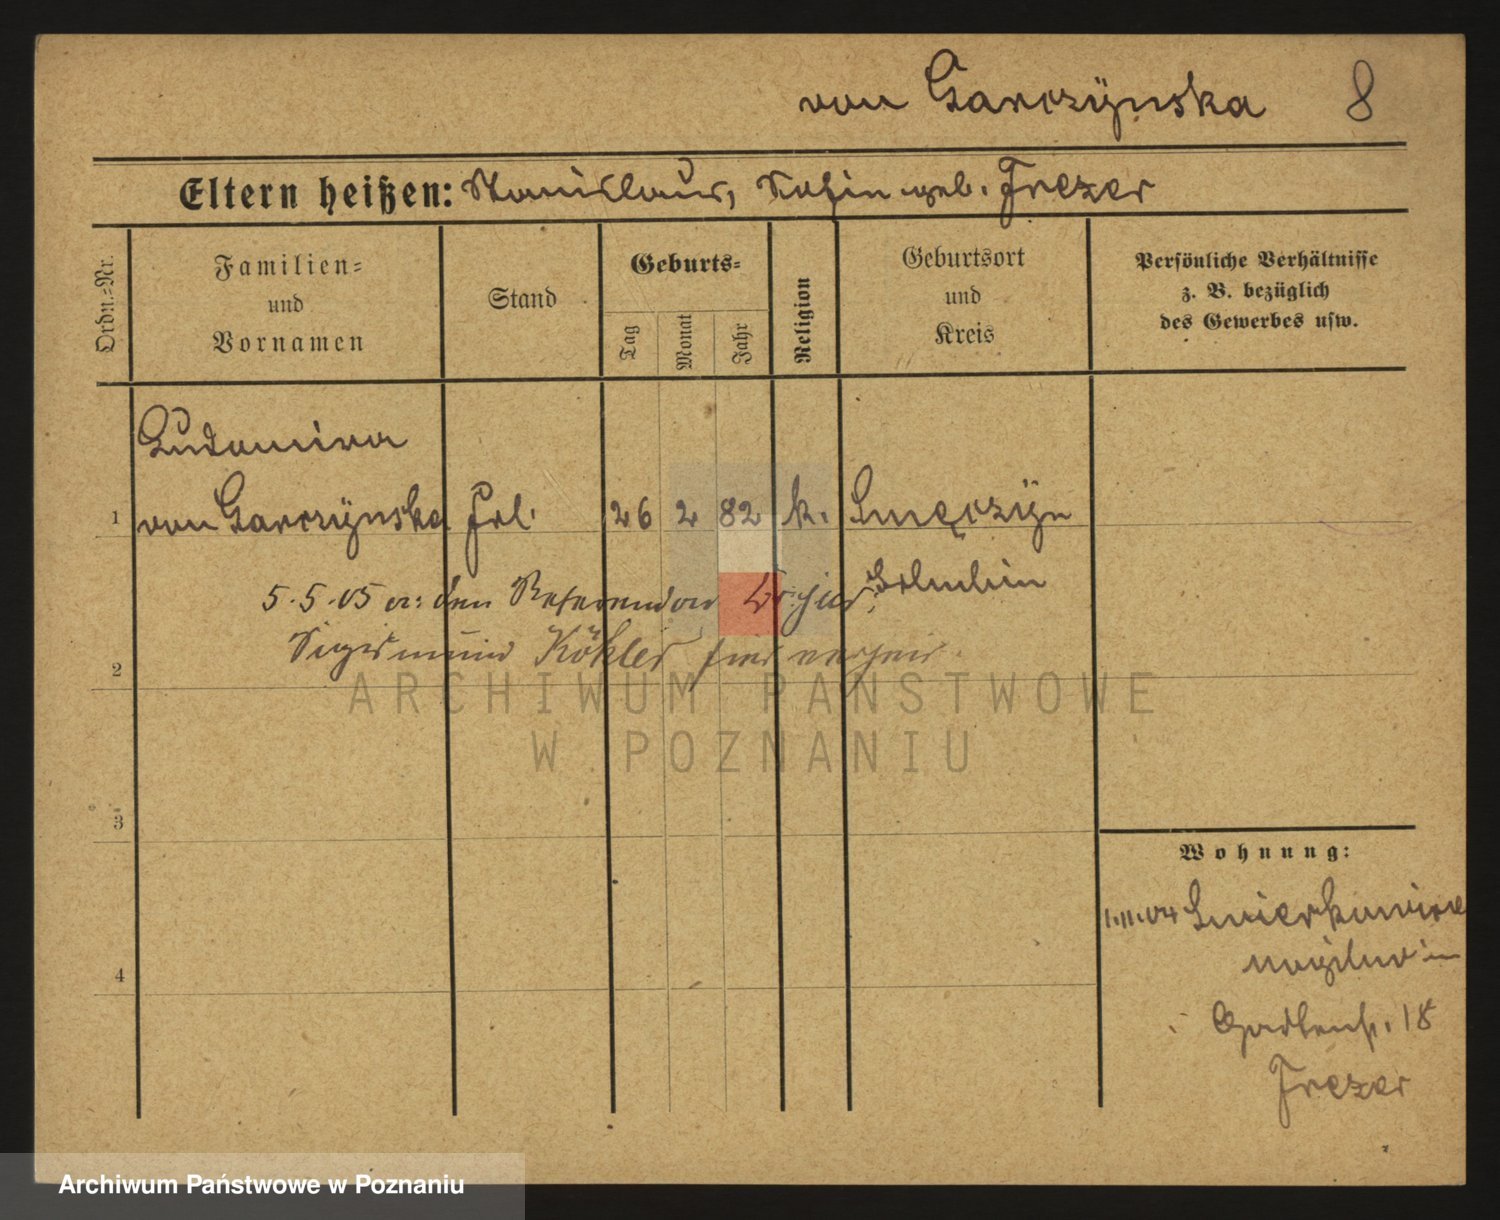 von Garczÿnska 8
Eltern heißen: Stanislaus, Sofie geb. Frezer
Ordn.-Nr.
Familien-
und
Vornamen
Stand
Geburts-
Tag
Monat
Jahr
Religion
Geburtsort
und
Kreis
Persönliche Verhältnisse
z. B. bezüglich
des Gewerbes usw.
Ludomira
1 von Garczÿnska Frl. 26 2 82 k. Smęczÿn
Schubin
5.5.05 a: den Referendar Dr. jur.
Sigismund Köhler hier verheir.
2
3
4
Wohnung:
1.11.04
Gartenstr. 18
Frezer
ARCHIWUM PAŃSTWOWE
W POZNANIU
Archiwum Państwowe w Poznaniu